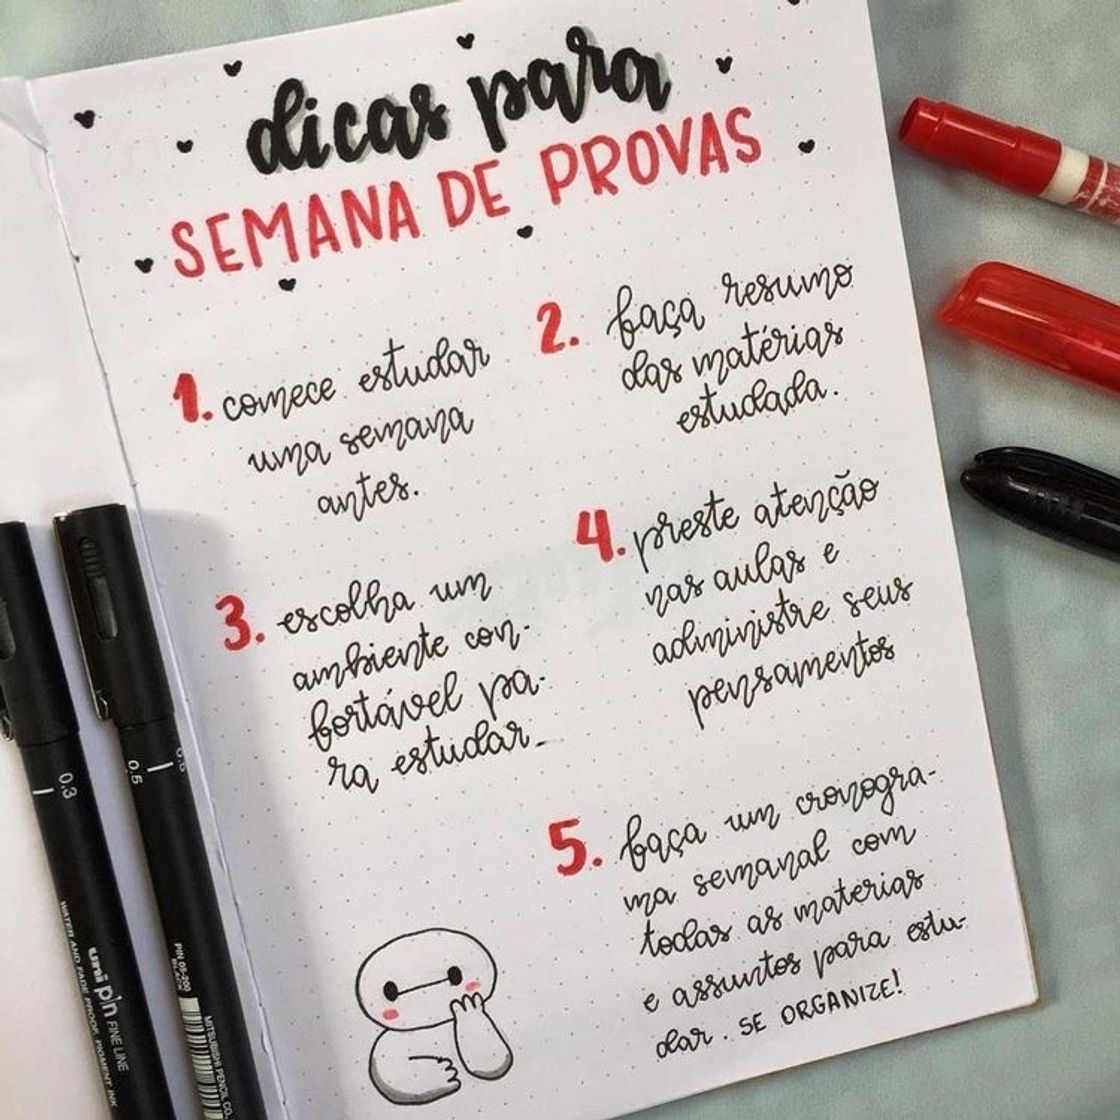 dicas para
SEMANA DE PROVAS
1. comece estudar
uma semana
antes.
2. faça resumo
das matérias
estudada.
3. escolha um
ambiente con-
fortável pa-
ra estudar.
4. preste atenção
nas aulas e
administre seus
pensamentos
5. faça um cronogra-
ma semanal com
todas as materias
e assuntos para estu-
dar. SE ORGANIZE!
0.3
WATER AND FADE PROOF, PIGMENT INK
uni pin FINE LINE
0.5
0.5
PIN 05-200
BLACK
MITSUBISHI PENCIL CO.